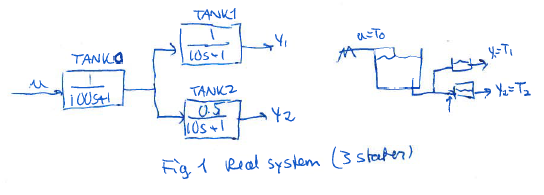 TANK1
1
10s+1
Y1
TANK0
u
1
100s+1
TANK2
0.5
10s+1
Y2
u=T0
Y1=T1
Y2=T2
Fig. 1 Real system (3 states)